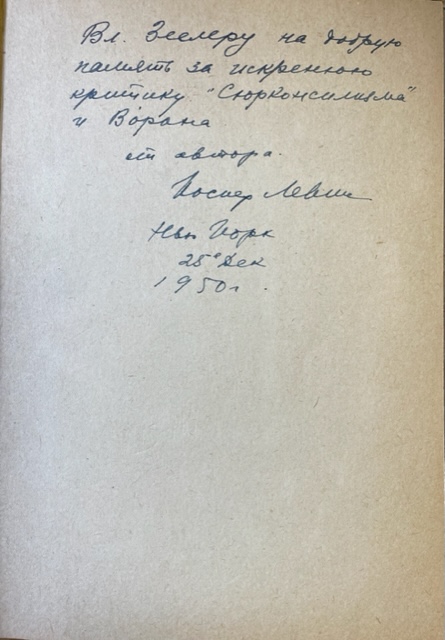 Вл. Зеелеру на добрую
память за искренюю
критику "Сюрконсилизма"
и Ворона
от автора.
Иоспер Левин
Нью Иорк
25º Дек
1950 г.